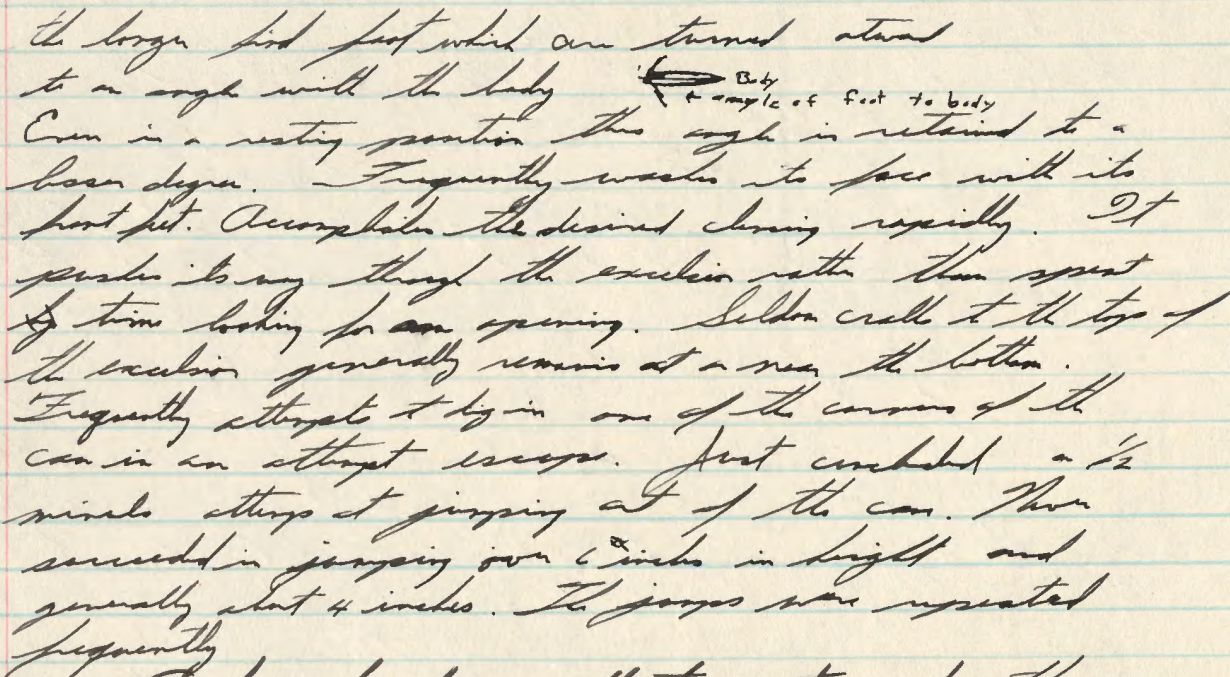 the longer hind feet which are turned outward
to an angle with the body Body
← angle of foot to body
Even in a resting position this angle is retained to a
lesser degree. Frequently washes its face with its
front feet. Accomplishes the desired cleaning rapidly. It
pushes its way through the excelsior rather than spent
time looking for an opening. Seldom cralls to the top of
the excelsior generally remains at or near the bottom.
Frequently attempts at dig in one of the corners of the
can in an attempt escape. Just concluded a 1/2
minute attemp at jumping out of the can. Never
succeeded in jumping over 6 inches in height and
generally about 4 inches. The jumps were repeated
frequently